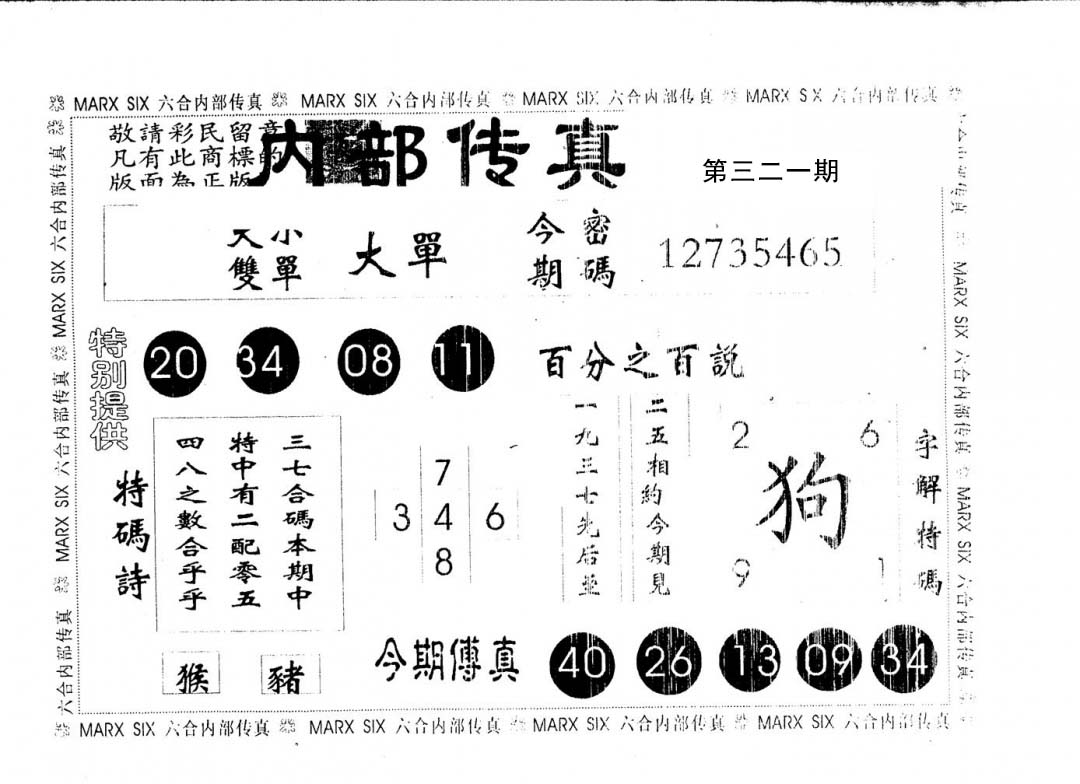 MARX SIX 六合内部传真 MARX SIX 六合内部传真 MARX SIX 六合内部传真 MARX SIX 六合内部传真
敬請彩民留意
凡有此商標的
版面為正版
内部传真
第三二一期
大小
雙單
大單
今期
密碼
12735465
特别提供
20 34 08 11
百分之百説
特碼詩
三七合碼本期中
特中有二配零五
四八之數合乎乎
7
3 4 6
8
二五相約今期見
一九三七先后並
2 6
狗
9 1
字解特碼
猴 豬
今期傳真
40 26 13 09 34
MARX SIX 六合内部传真 MARX SIX 六合内部传真 MARX SIX 六合内部传真 MARX SIX 六合内部传真
六合内部传真 MARX SIX 六合内部传真 MARX SIX 六合内部传真
MARX SIX 六合内部传真 MARX SIX 六合内部传真